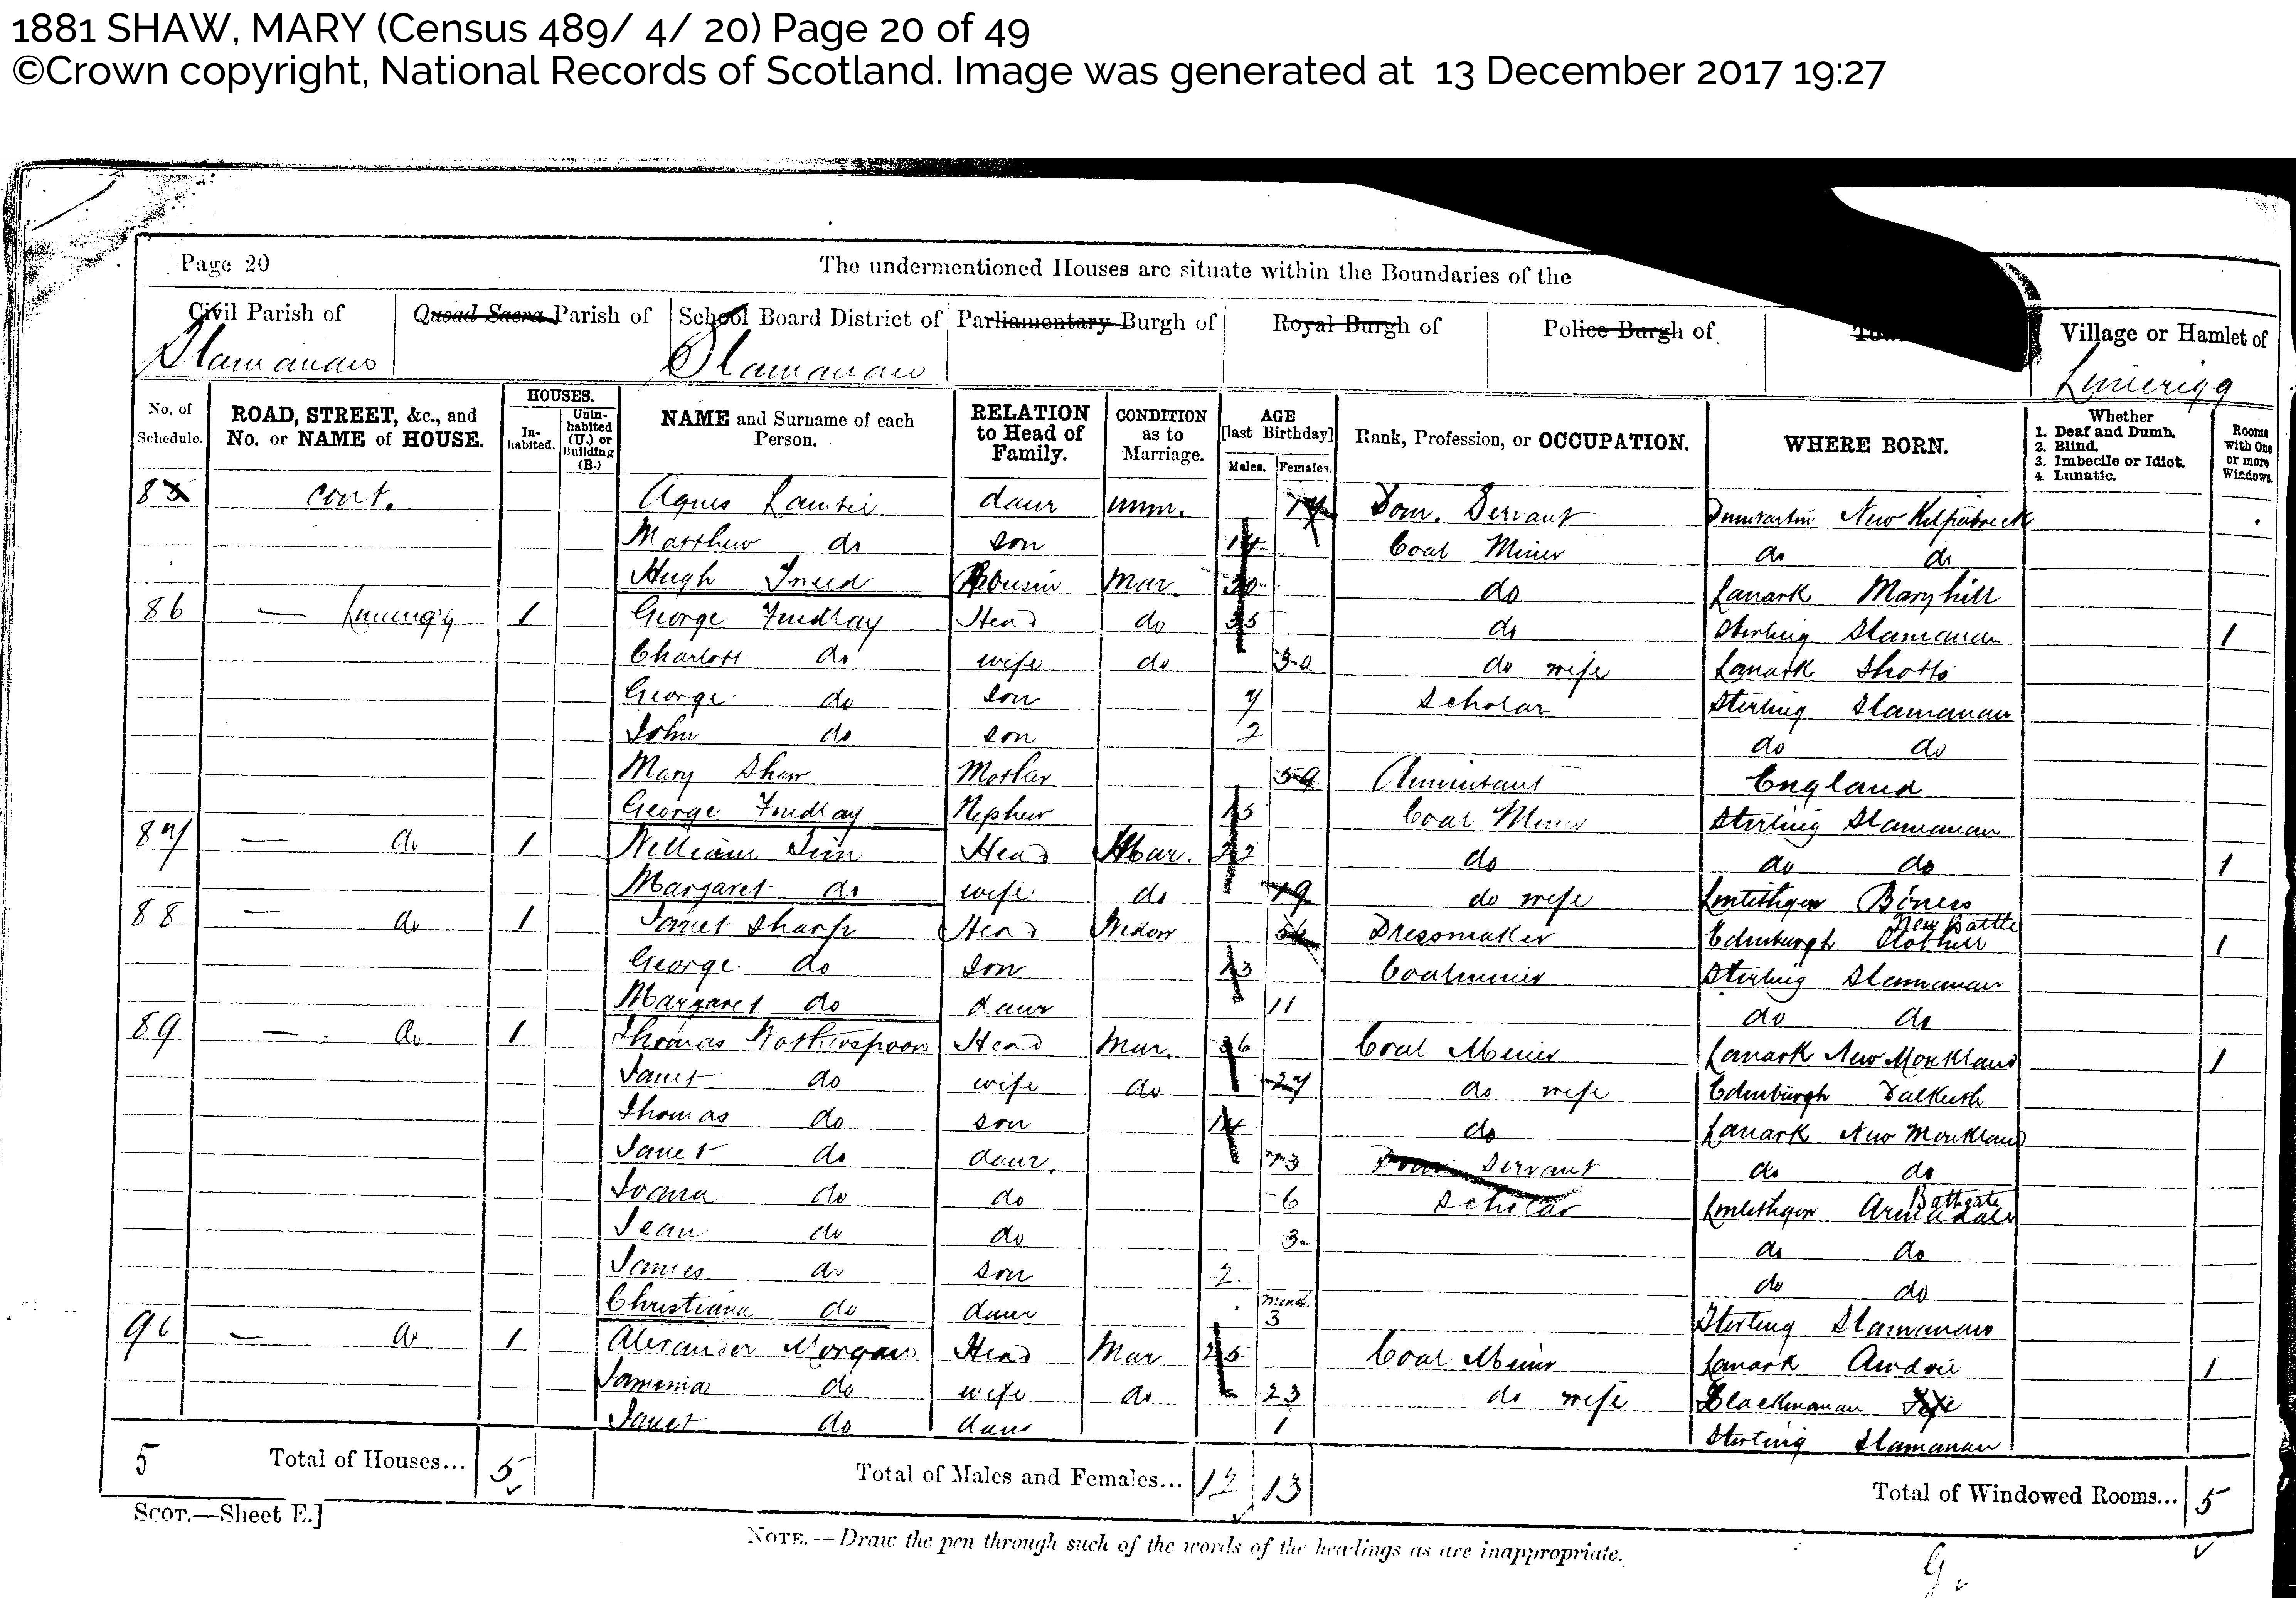 1881 SHAW, MARY (Census 489/ 4/ 20) Page 20 of 49
©Crown copyright, National Records of Scotland. Image was generated at 13 December 2017 19:27
Page 20
The undermentioned Houses are situate within the Boundaries of the
Civil Parish of Quoad Sacra Parish of School Board District of Parliamentary Burgh of Royal Burgh of Police Burgh of Village or Hamlet of
Slamanan Slamanan Limerigg
No. of Schedule. ROAD, STREET, &c., and No. or NAME of HOUSE. HOUSES. Inhabited. Uninhabited (U.) or Building (B.) NAME and Surname of each Person. RELATION to Head of Family. CONDITION as to Marriage. AGE [last Birthday] Males. Females. Rank, Profession, or OCCUPATION. WHERE BORN. Whether 1. Deaf and Dumb. 2. Blind. 3. Imbecile or Idiot. 4. Lunatic. Rooms with One or more Windows.
cont. Agnes daur unm. 17 Dom. Servant New Kilpatrick
Matthew do son 14 Coal Miner do do
Hugh Cousin Mar. 30 do Lanark Maryhill
86 — Limerigg 1 George Findlay Head do 35 do Stirling Slamanan 1
Charlott do wife do 30 do wife Lanark Shotts
George do son 7 Scholar Stirling Slamanan
John do son 2 do do
Mary Shaw Mother 59 Annuitant England
George Findlay Nephew 15 Coal Miner Stirling Slamanan
87 — do 1 William Head Mar. 22 do do do 1
Margaret do wife do 19 do wife Linlithgow Boness
88 — do 1 Janet Sharp Head Widow Dressmaker Edinburgh New Battle 1
George do son 13 Coalminer Stirling Slamanan
Margaret do daur 11 do do
89 — do 1 Thomas Head Mar. 36 Coal Miner Lanark New Monkland 1
Janet do wife do 27 do wife Edinburgh Dalkeith
Thomas do son 14 do Lanark New Monkland
Janet do daur. 13 Dom Servant do do
Joana do do 6 Scholar Linlithgow Armadale Bathgate
Jean do do 3 do do
James do son 2 do do
Christiana do daur Month. 3 Stirling Slamanan
90 — do 1 Alexander Morgan Head Mar 25 Coal Miner Lanark Airdrie 1
Jamima do wife do 23 do wife Clackmanan
Janet do daur 1 Stirling Slamanan
5 Total of Houses... 5 Total of Males and Females... 12 13 Total of Windowed Rooms... 5
SCOT.—Sheet E.]
NOTE.—Draw the pen through such of the words of the headings as are inappropriate.